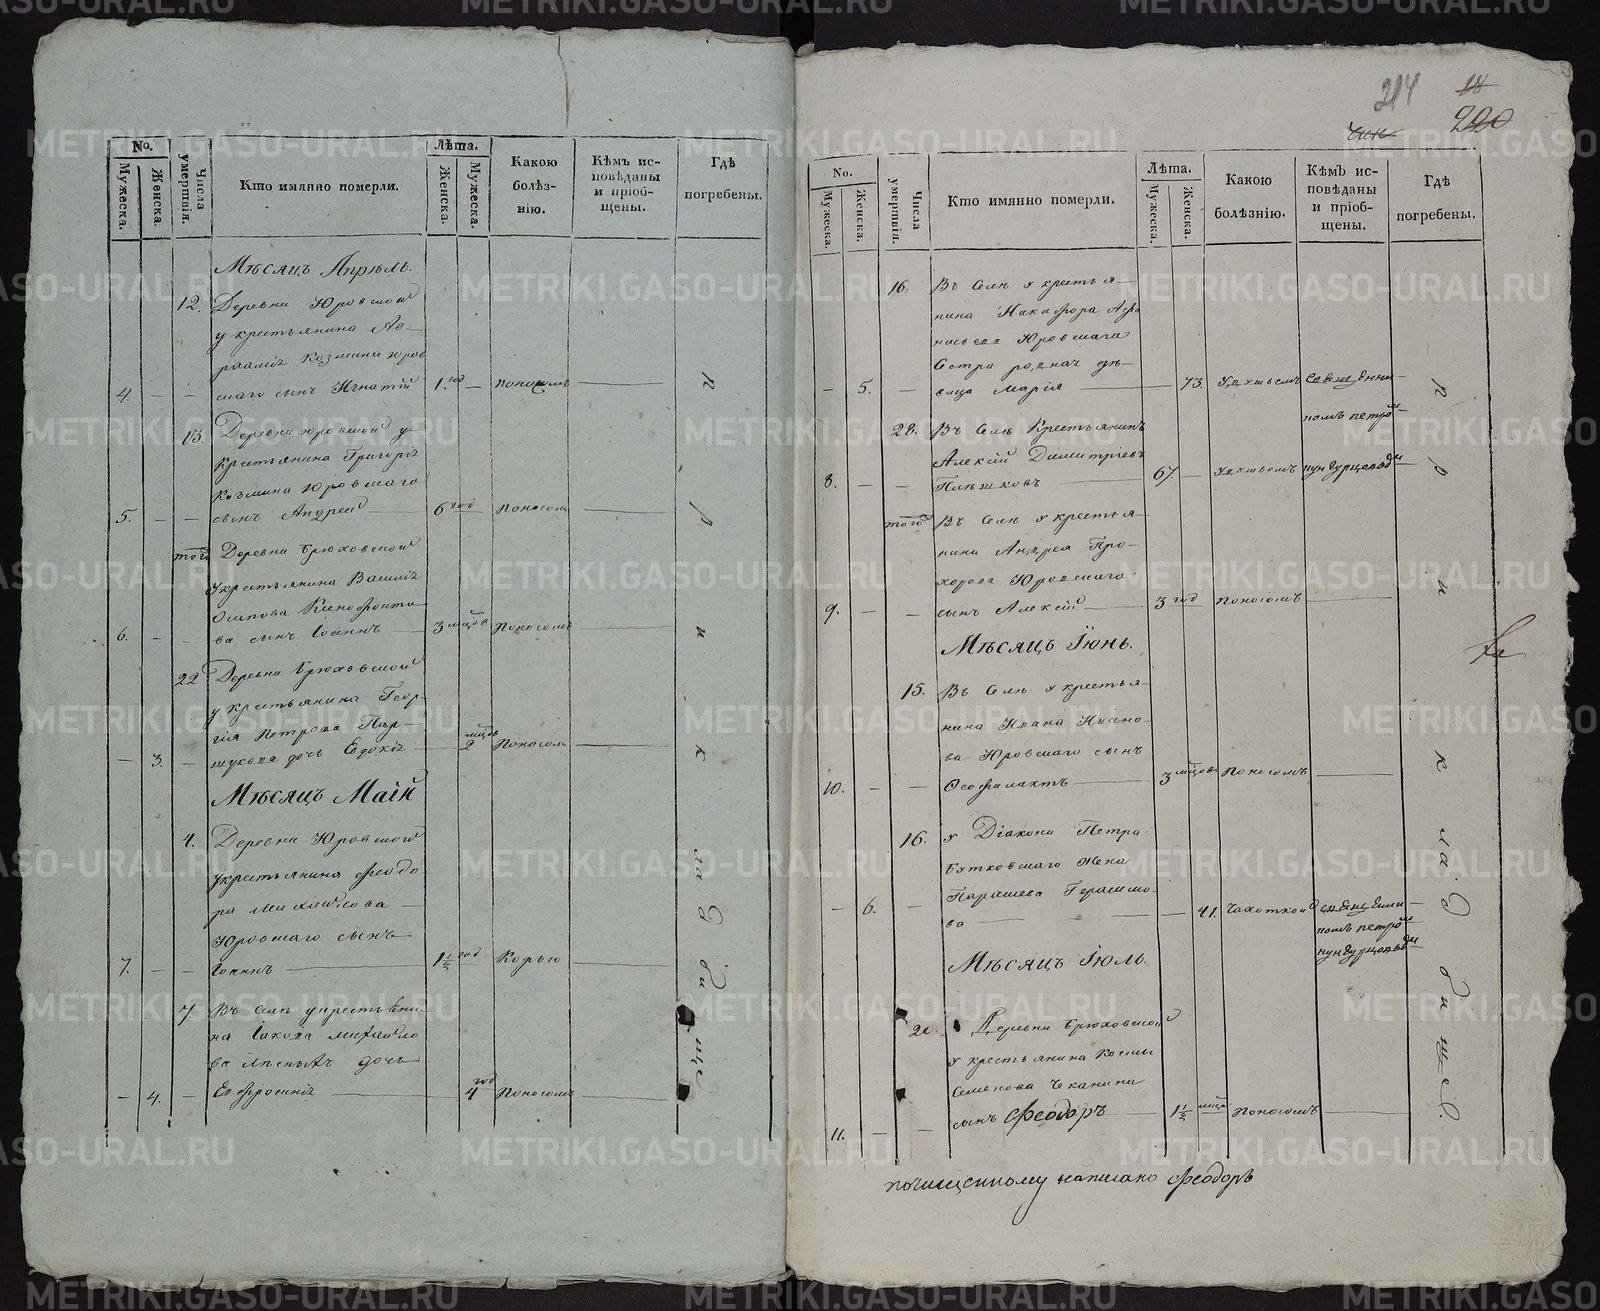 No.
Мужеска.
Женска.
Числа умертвія.
Кто имянно померли.
Лѣта.
Женска.
Мужеска.
Какою болѣз-
нію.
Кѣмъ ис-
повѣданы
и пріоб-
щены.
Гдѣ
погребены.
Мѣсяцъ Апрѣль.
12. Деревни Юровской
у крестьянина Ав-
раамія Козмина Юров
4. — — скаго сынъ Игнатій 1. год — поносомъ
13. Деревни Юровской у
крестьянина Григорія
Козмина Юровскаго
5. — — сынъ Андрей 6 год поносом
того Деревни Брюховской
у крестьянина Василія
Осипова Ксенофонто
6. — — ва сынъ Іоаннъ 3 мѣцов поносомъ
22 Деревни Брюховской
у крестьянина Геор-
гія Петрова Пар-
— 3. — шукова дочь Евдокія 2 мѣцов поносом
Мѣсяцъ Маій
4. Деревни Юровской
у крестьянина Феодо
ра Михайлова
Юровскаго сынъ
7. — — Іоаннъ 1½ год Корью
7. Въ селѣ у крестьени-
на Іакова Михайло
ва дочь
— 4. — Евфросинія 4 год поносомъ
при кладбище
214
18
220
No.
Мужеска.
Женска.
Числа умертвія.
Кто имянно померли.
Лѣта.
Мужеска.
Женска.
Какою
болѣзнію.
Кѣмъ ис-
повѣданы
и пріоб-
щены.
Гдѣ
погребены.
16. Въ селѣ у крестья-
нина Никифора Афо
насьева Юровскаго
Сестра родная дѣ-
— 5. — вица Марія — 73. удушьемъ священни-
комъ петром
28. Въ селѣ Крестьянинъ
Алексій Димитріевъ
8. — — Плѣшковъ 67. — удушьемъ
того Въ селѣ у крестья-
нина Андрея Про-
хорова Юровскаго
9. — — сынъ Алексій 3 год поносомъ
Мѣсяцъ Іюнь.
15. Въ селѣ у крестья-
нина Ивана Ивано-
ва Юровскаго сынъ
10. — — Феофилактъ 3 мѣцов поносомъ
16. у Діакона Петра
Бутковскаго жена
Парашева Герасимо-
— 6. — ва — 41. Чахоткой священни
комъ петром
Мѣсяцъ Іюль.
20. Деревни Брюховской
у крестьянина Космы
Семенова Чеканина
11. — — сынъ Феодоръ 1½ мѣца поносомъ
при кладбище.
почищенному написано Феодоръ
METRIKI.GASO-URAL.RU